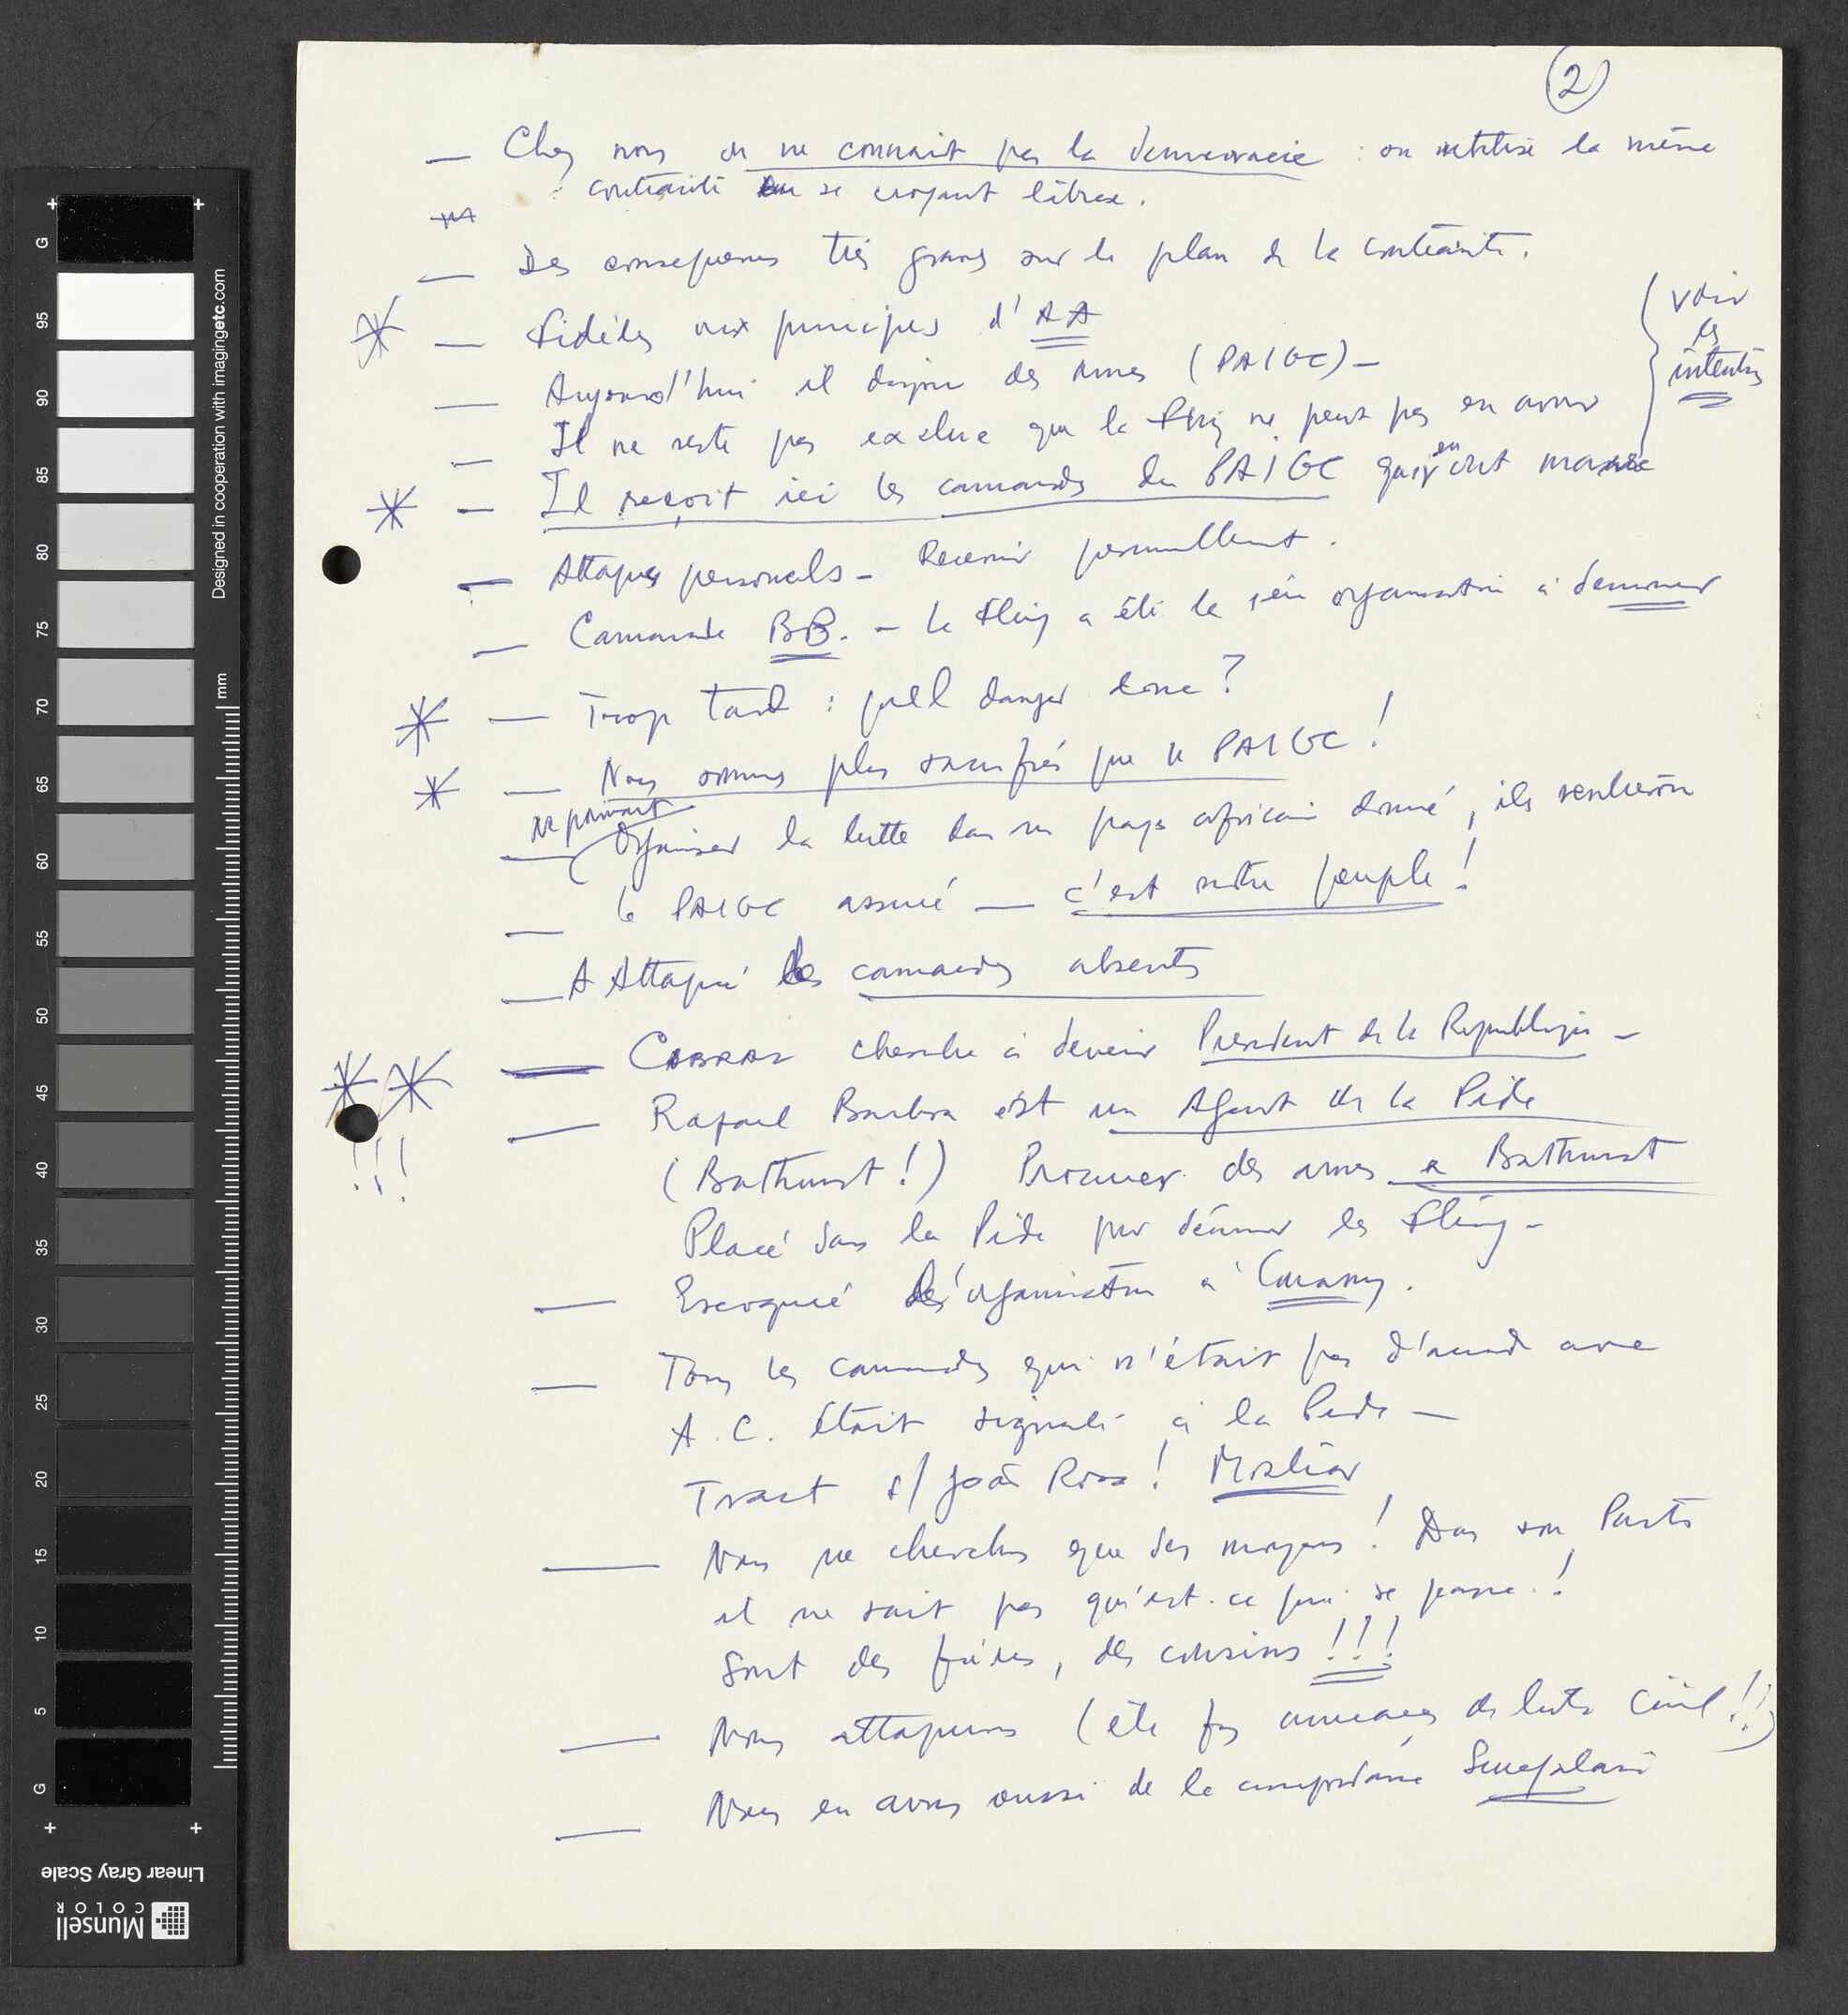 2
— Chez nous on ne connait pas la democracie : on utilise la même
contrainte en se croyant libres.
— Des consequences très graves sur le plan de la contrainte.
— Fidéles aux principes d'AA
— Aujourd'hui il dispose des armes (PAIGC) —
— Il ne reste pas exclue que le Fling ne peut pas en avoir
voir
les
intentions
— Il reçoit ici les camarades du PAIGC qui en ont marre
— Attaques personels — Revenir
— Camarade BB. — Le Fling a été la 1ère organisation à
— Trop tard : quell danger donc ?
— Nous sommes plus sacrifiés que le PAIGC !
— ne pouvant Organiser la lutte dans un pays africain donné, ils
— le PAIGC assuré — c'est notre peuple !
— A Attaqué les camarades absents
— CABRAL cherche à devenir President de la Republique —
!!!
— Rafael Barbosa est un Agent de la Pide
(Bathurst !) Procurer des armes a Bathurst
Placé dans la Pide pour les Fling —
— Escroquié l'organisation à Conakry.
— Tous les camarades qui n'était pas d'accord avec
A. C. était signalé à la Pide —
Tract s/ João Rosa !
— Nous ne cherchons que des moyens ! Dans son Parti
il ne sait pas qu'est-ce qui se passe !
Sont des fréres, des cousins !!!
— Nous attaquerons (été fos menaces de lutte Civil !!)
— Nous en avons aussi de la Senegalaise